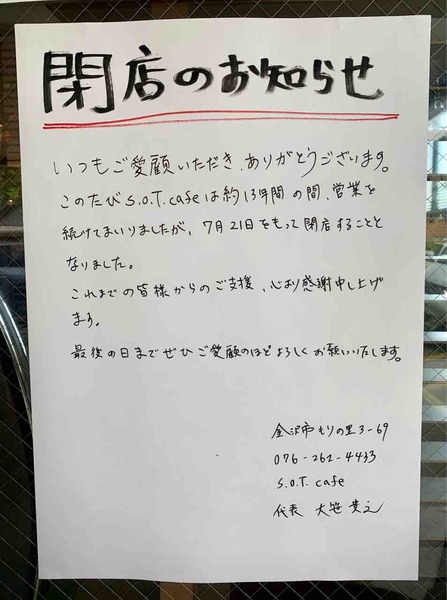 閉店のお知らせ
いつもご愛顧いただき、ありがとうございます。
このたびS.O.T.cafeは約13年間の間、営業を
続けてまいりましたが、7月21日をもって閉店することと
なりました。
これまでの皆様からのご支援、心より感謝申し上げ
ます。
最後の日までぜひご愛顧のほどよろしくお願いいたします。
金沢市もりの里3-69
076-262-4433
S.O.T. cafe
代表 大笹 貴之